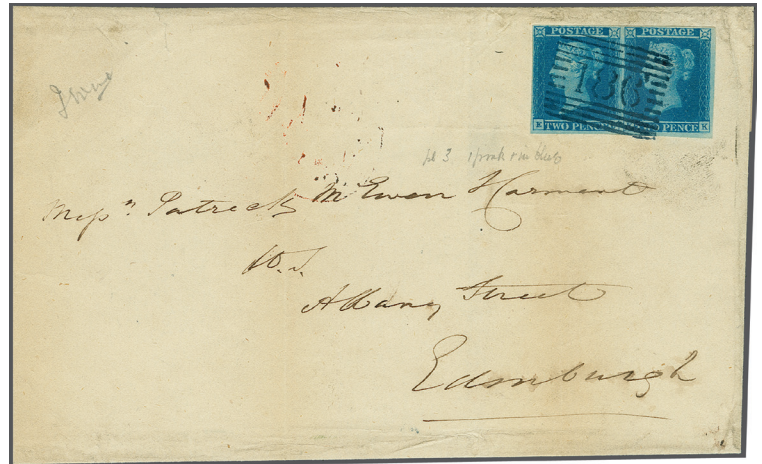 POSTAGE POSTAGE
186
K TWO PENCE PENCE K
pl 3
Mess.rs Patrick McEwen Harment
W.S.
Albany Street
Edinburgh